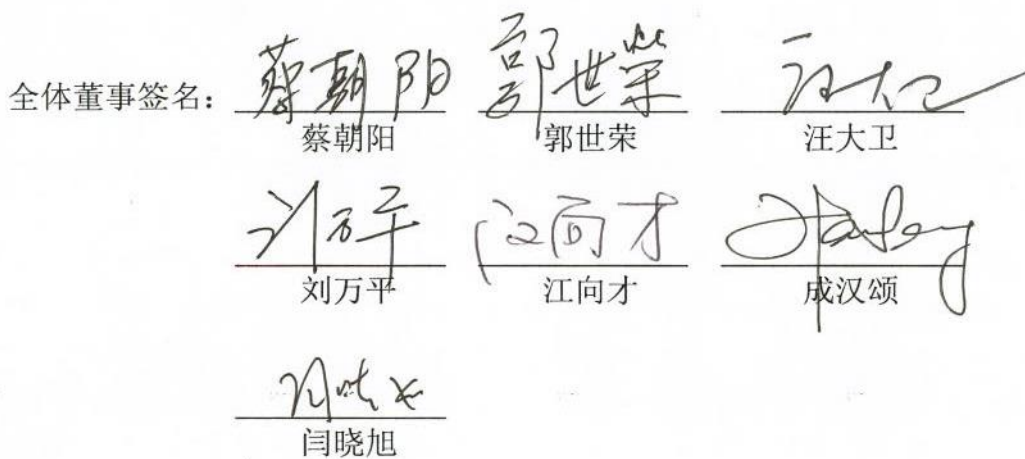 全体董事签名： 蔡朝阳 郭世荣 汪大卫
蔡朝阳 郭世荣 汪大卫
刘万平 江向才
刘万平 江向才 成汉颂
闫晓旭